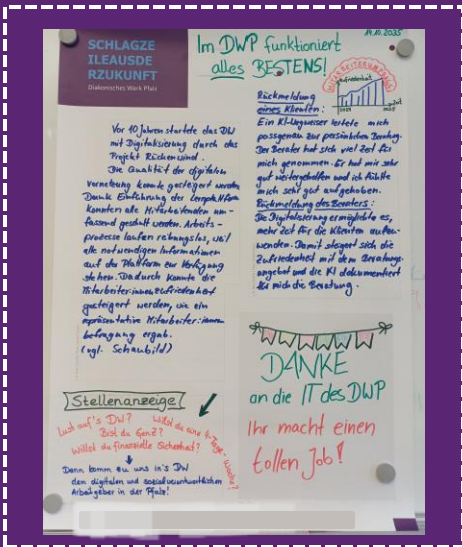 SCHLAGZE
ILEAUSDE
RZUKUNFT
Diakonisches Werk Pfalz
14.10.2035
Im DWP funktioniert
alles BESTENS!
Vor 10 Jahren startete das DW
mit Digitalisierung durch das
Projekt Rückenwind.
Die Qualität der digitalen
Vernetzung konnte gesteigert werden
Dank Einführung der Lernplattform
konnten alle Mitarbeitenden um-
fassend geschult werden. Arbeits-
prozesse laufen reibungslos, weil
alle notwendigen Informationen
auf der Plattform zur Verfügung
stehen. Dadurch konnte die
Mitarbeiter:innenzufriedenheit
gesteigert werden, wie ein
repräsentative Mitarbeiter:innen
befragung ergab.
(vgl. Schaubild)
MITARBEITERUMFRAGE
Zufriedenheit
Zeit
2025
2035
Rückmeldung
eines Klienten:
Ein KI-Wegweiser leitete mich
passgenau zur persönlichen Beratung.
Der Berater hat sich viel Zeit für
mich genommen. Er hat mir sehr
gut weitergeholfen und ich fühlte
mich sehr gut aufgehoben.
Rückmeldung des Beraters:
Die Digitalisierung ermöglichte es,
mehr Zeit für die Klienten aufzu-
wenden. Damit steigert sich die
Zufriedenheit mit dem Beratungs-
angebot und die KI dokumentiert
für mich die Beratung.
Stellenanzeige
Lust auf's DW? Willst du eine 4-Tage-Woche?
Bist du GenZ?
Willst du finanzielle Sicherheit?
Dann komm zu uns in's DW
den digitalen und sozialverantwortlichen
Arbeitgeber in der Pfalz!
DANKE
an die IT des DWP
Ihr macht einen
tollen Job!